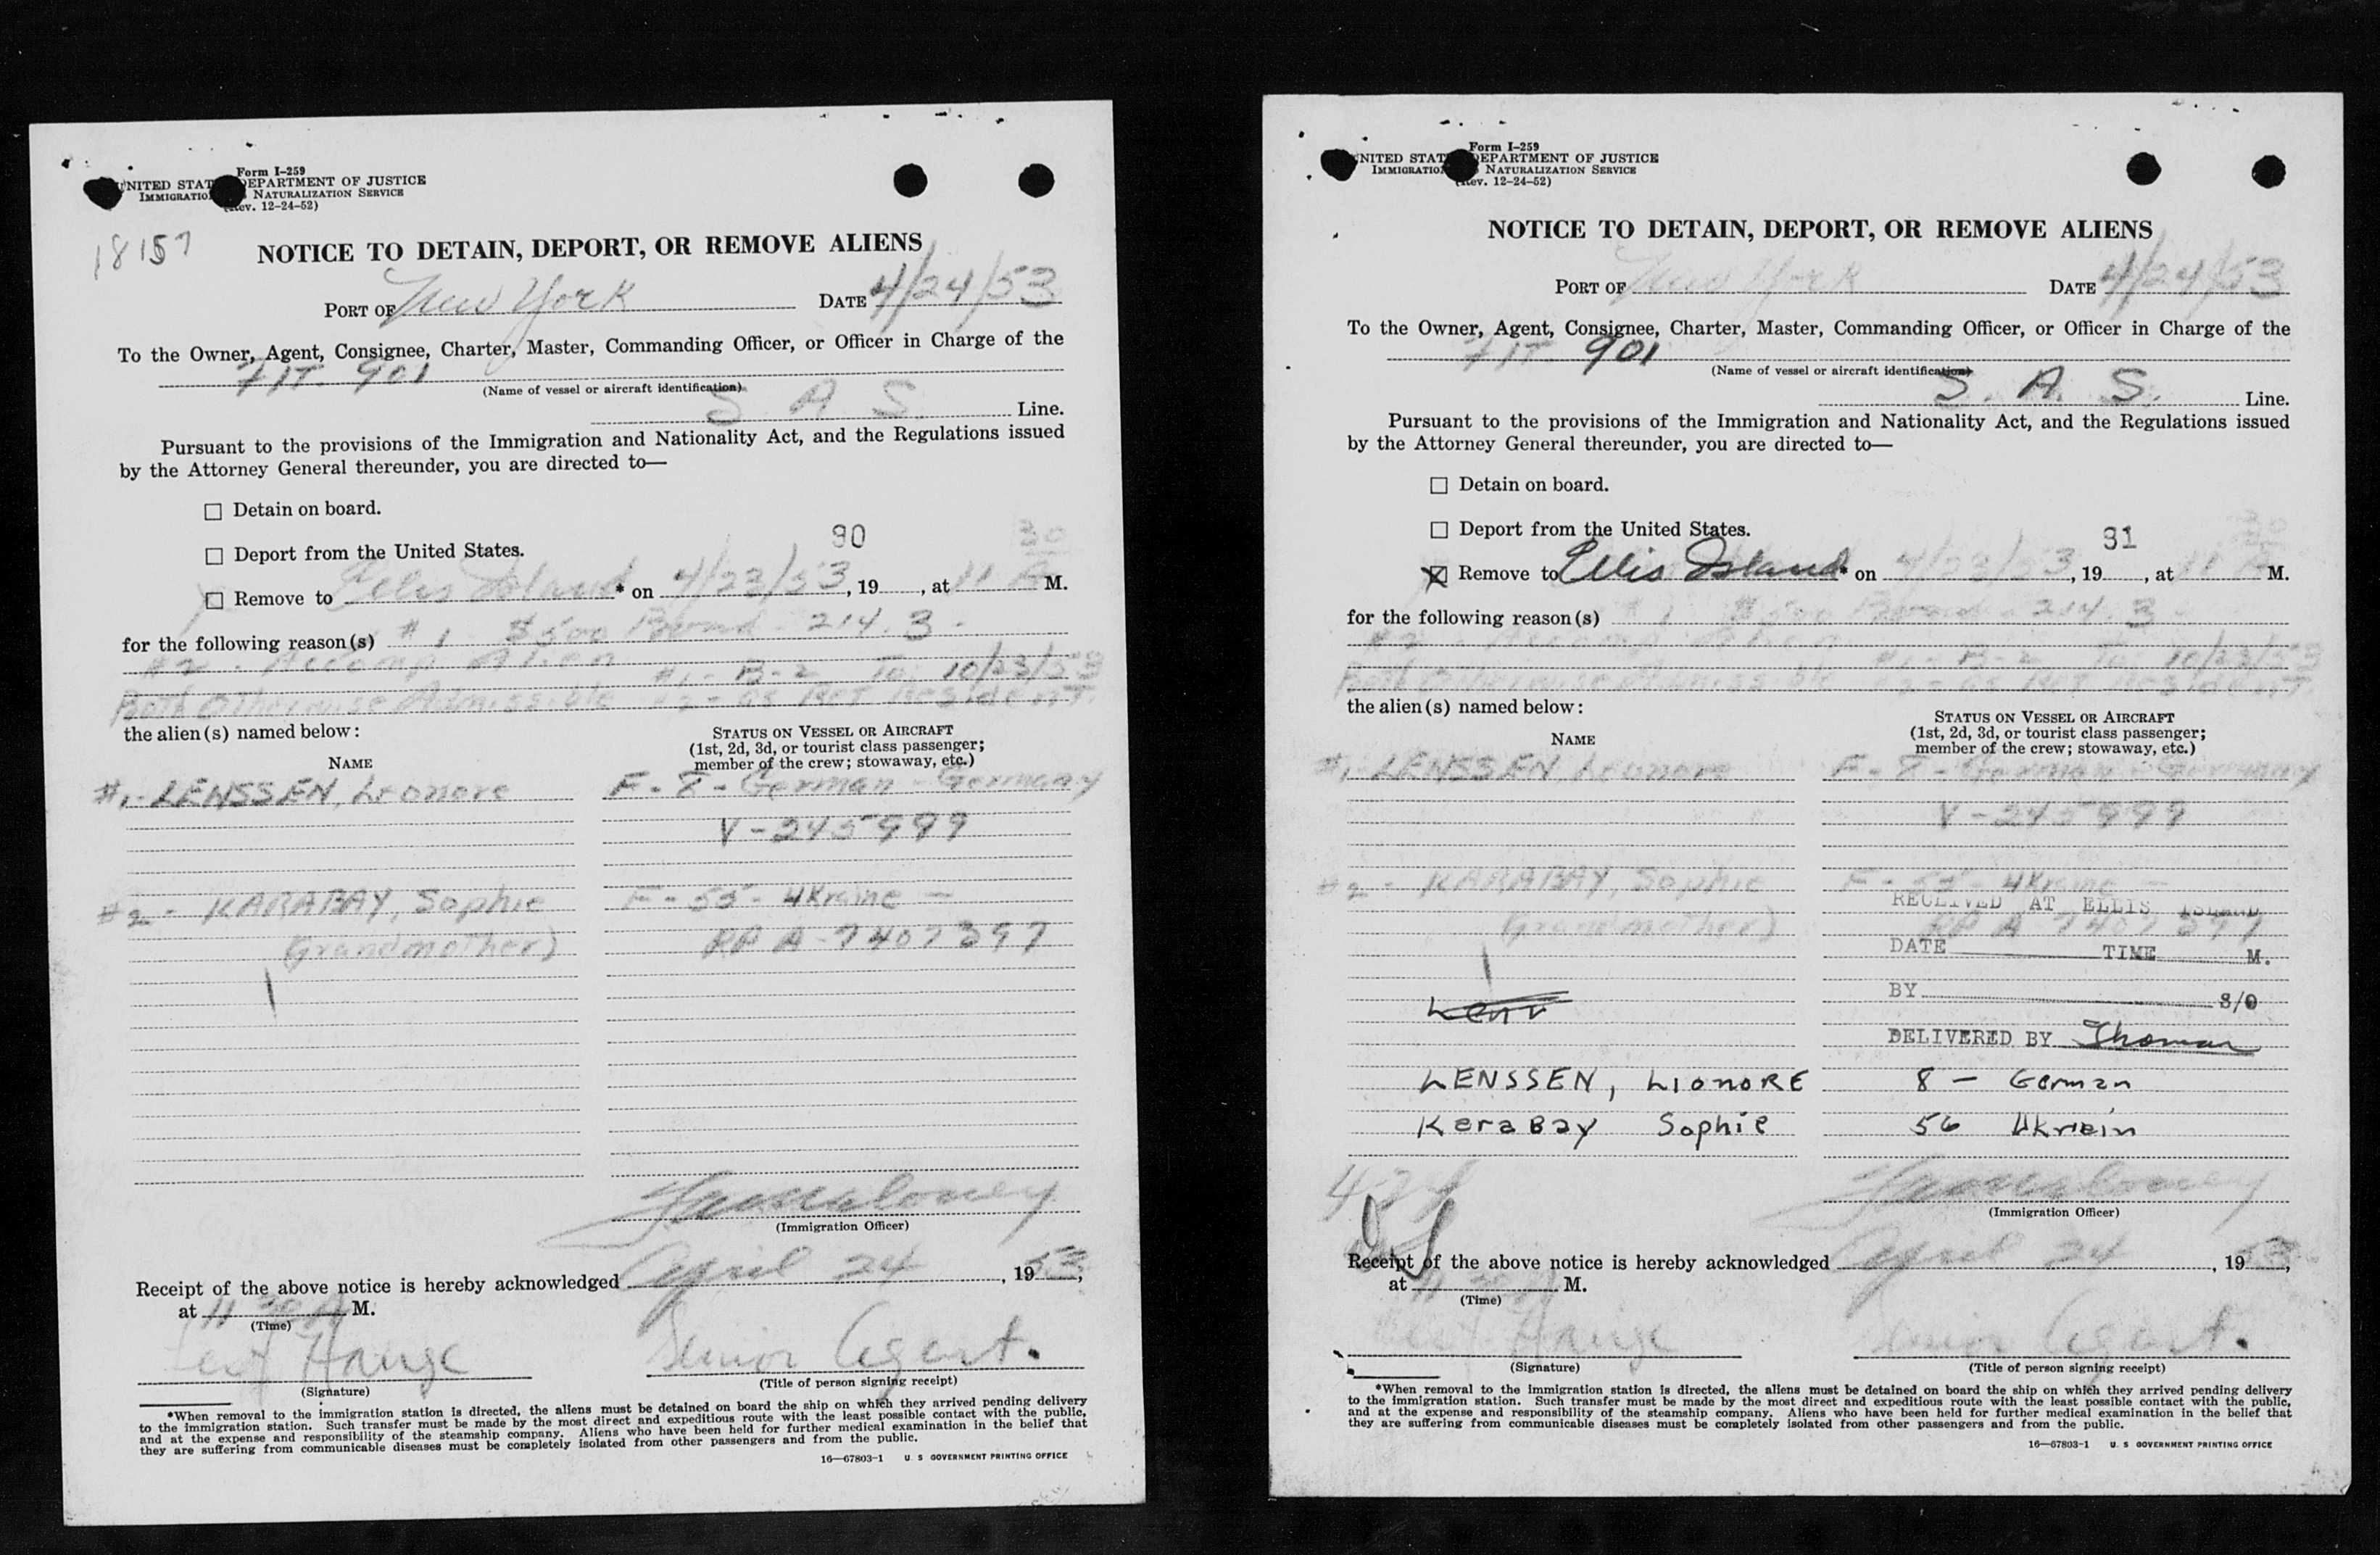 Form I-259
UNITED STATES DEPARTMENT OF JUSTICE
IMMIGRATION NATURALIZATION SERVICE
(Rev. 12-24-52)
18157
NOTICE TO DETAIN, DEPORT, OR REMOVE ALIENS
PORT OF New York DATE 4/24/53
To the Owner, Agent, Consignee, Charter, Master, Commanding Officer, or Officer in Charge of the
FLT. 901
(Name of vessel or aircraft identification)
S A S. Line.
Pursuant to the provisions of the Immigration and Nationality Act, and the Regulations issued
by the Attorney General thereunder, you are directed to—
☐ Detain on board.
90
☐ Deport from the United States.
☐ Remove to Ellis Island * on 4/23/53, 19 , at 11 30 A M.
for the following reason(s) #1 $500 Bond - 214.3 -
#2 - Accomp Alien #1 - B-2 To: 10/23/53
Both Otherwise Admissible #2 - as Ret Resident.
the alien(s) named below:
NAME
STATUS ON VESSEL OR AIRCRAFT
(1st, 2d, 3d, or tourist class passenger;
member of the crew; stowaway, etc.)
#1 - LENSSEN, Leonore F - 8 - German - Germany
V - 245999
#2 - KARABAY, Sophie F - 55 - Ukraine -
(Grandmother) RP A-7407397
(Immigration Officer)
Receipt of the above notice is hereby acknowledged April 24, 1953,
at 11 30 A M.
(Time)
Hauge Senior Agent.
(Signature) (Title of person signing receipt)
*When removal to the immigration station is directed, the aliens must be detained on board the ship on which they arrived pending delivery
to the immigration station. Such transfer must be made by the most direct and expeditious route with the least possible contact with the public,
and at the expense and responsibility of the steamship company. Aliens who have been held for further medical examination in the belief that
they are suffering from communicable diseases must be completely isolated from other passengers and from the public.
16—67803-1 U. S GOVERNMENT PRINTING OFFICE
Form I-259
UNITED STATES DEPARTMENT OF JUSTICE
IMMIGRATION NATURALIZATION SERVICE
(Rev. 12-24-52)
NOTICE TO DETAIN, DEPORT, OR REMOVE ALIENS
PORT OF New York DATE 4/24/53
To the Owner, Agent, Consignee, Charter, Master, Commanding Officer, or Officer in Charge of the
FLT 901
(Name of vessel or aircraft identification)
S. A. S. Line.
Pursuant to the provisions of the Immigration and Nationality Act, and the Regulations issued
by the Attorney General thereunder, you are directed to—
☐ Detain on board.
☐ Deport from the United States.
91
☒ Remove to Ellis Island * on 4/23/53, 19 , at 11 30 A M.
for the following reason(s) #1 $500 Bond - 214.3 -
#2 - Accomp Alien #1 - B-2 To: 10/23/53
Both Otherwise Admissible #2 - as Ret Resident
the alien(s) named below:
NAME
STATUS ON VESSEL OR AIRCRAFT
(1st, 2d, 3d, or tourist class passenger;
member of the crew; stowaway, etc.)
#1 LENSSEN Leonore F - 8 - German - Germany
V - 245999
#2 - KARABAY, Sophie F - 55 - Ukraine -
RECEIVED AT ELLIS ISLAND
(Grandmother) RP A-7407397
DATE TIME M.
BY S/O
DELIVERED BY Thomas
LENSSEN, LIONORE 8 - German
KaraBay Sophie 56 Ukrain
(Immigration Officer)
Receipt of the above notice is hereby acknowledged April 24, 1953,
at 11 30 A M.
(Time)
Hauge Senior Agent.
(Signature) (Title of person signing receipt)
*When removal to the immigration station is directed, the aliens must be detained on board the ship on which they arrived pending delivery
to the immigration station. Such transfer must be made by the most direct and expeditious route with the least possible contact with the public,
and at the expense and responsibility of the steamship company. Aliens who have been held for further medical examination in the belief that
they are suffering from communicable diseases must be completely isolated from other passengers and from the public.
16—67803-1 U. S GOVERNMENT PRINTING OFFICE